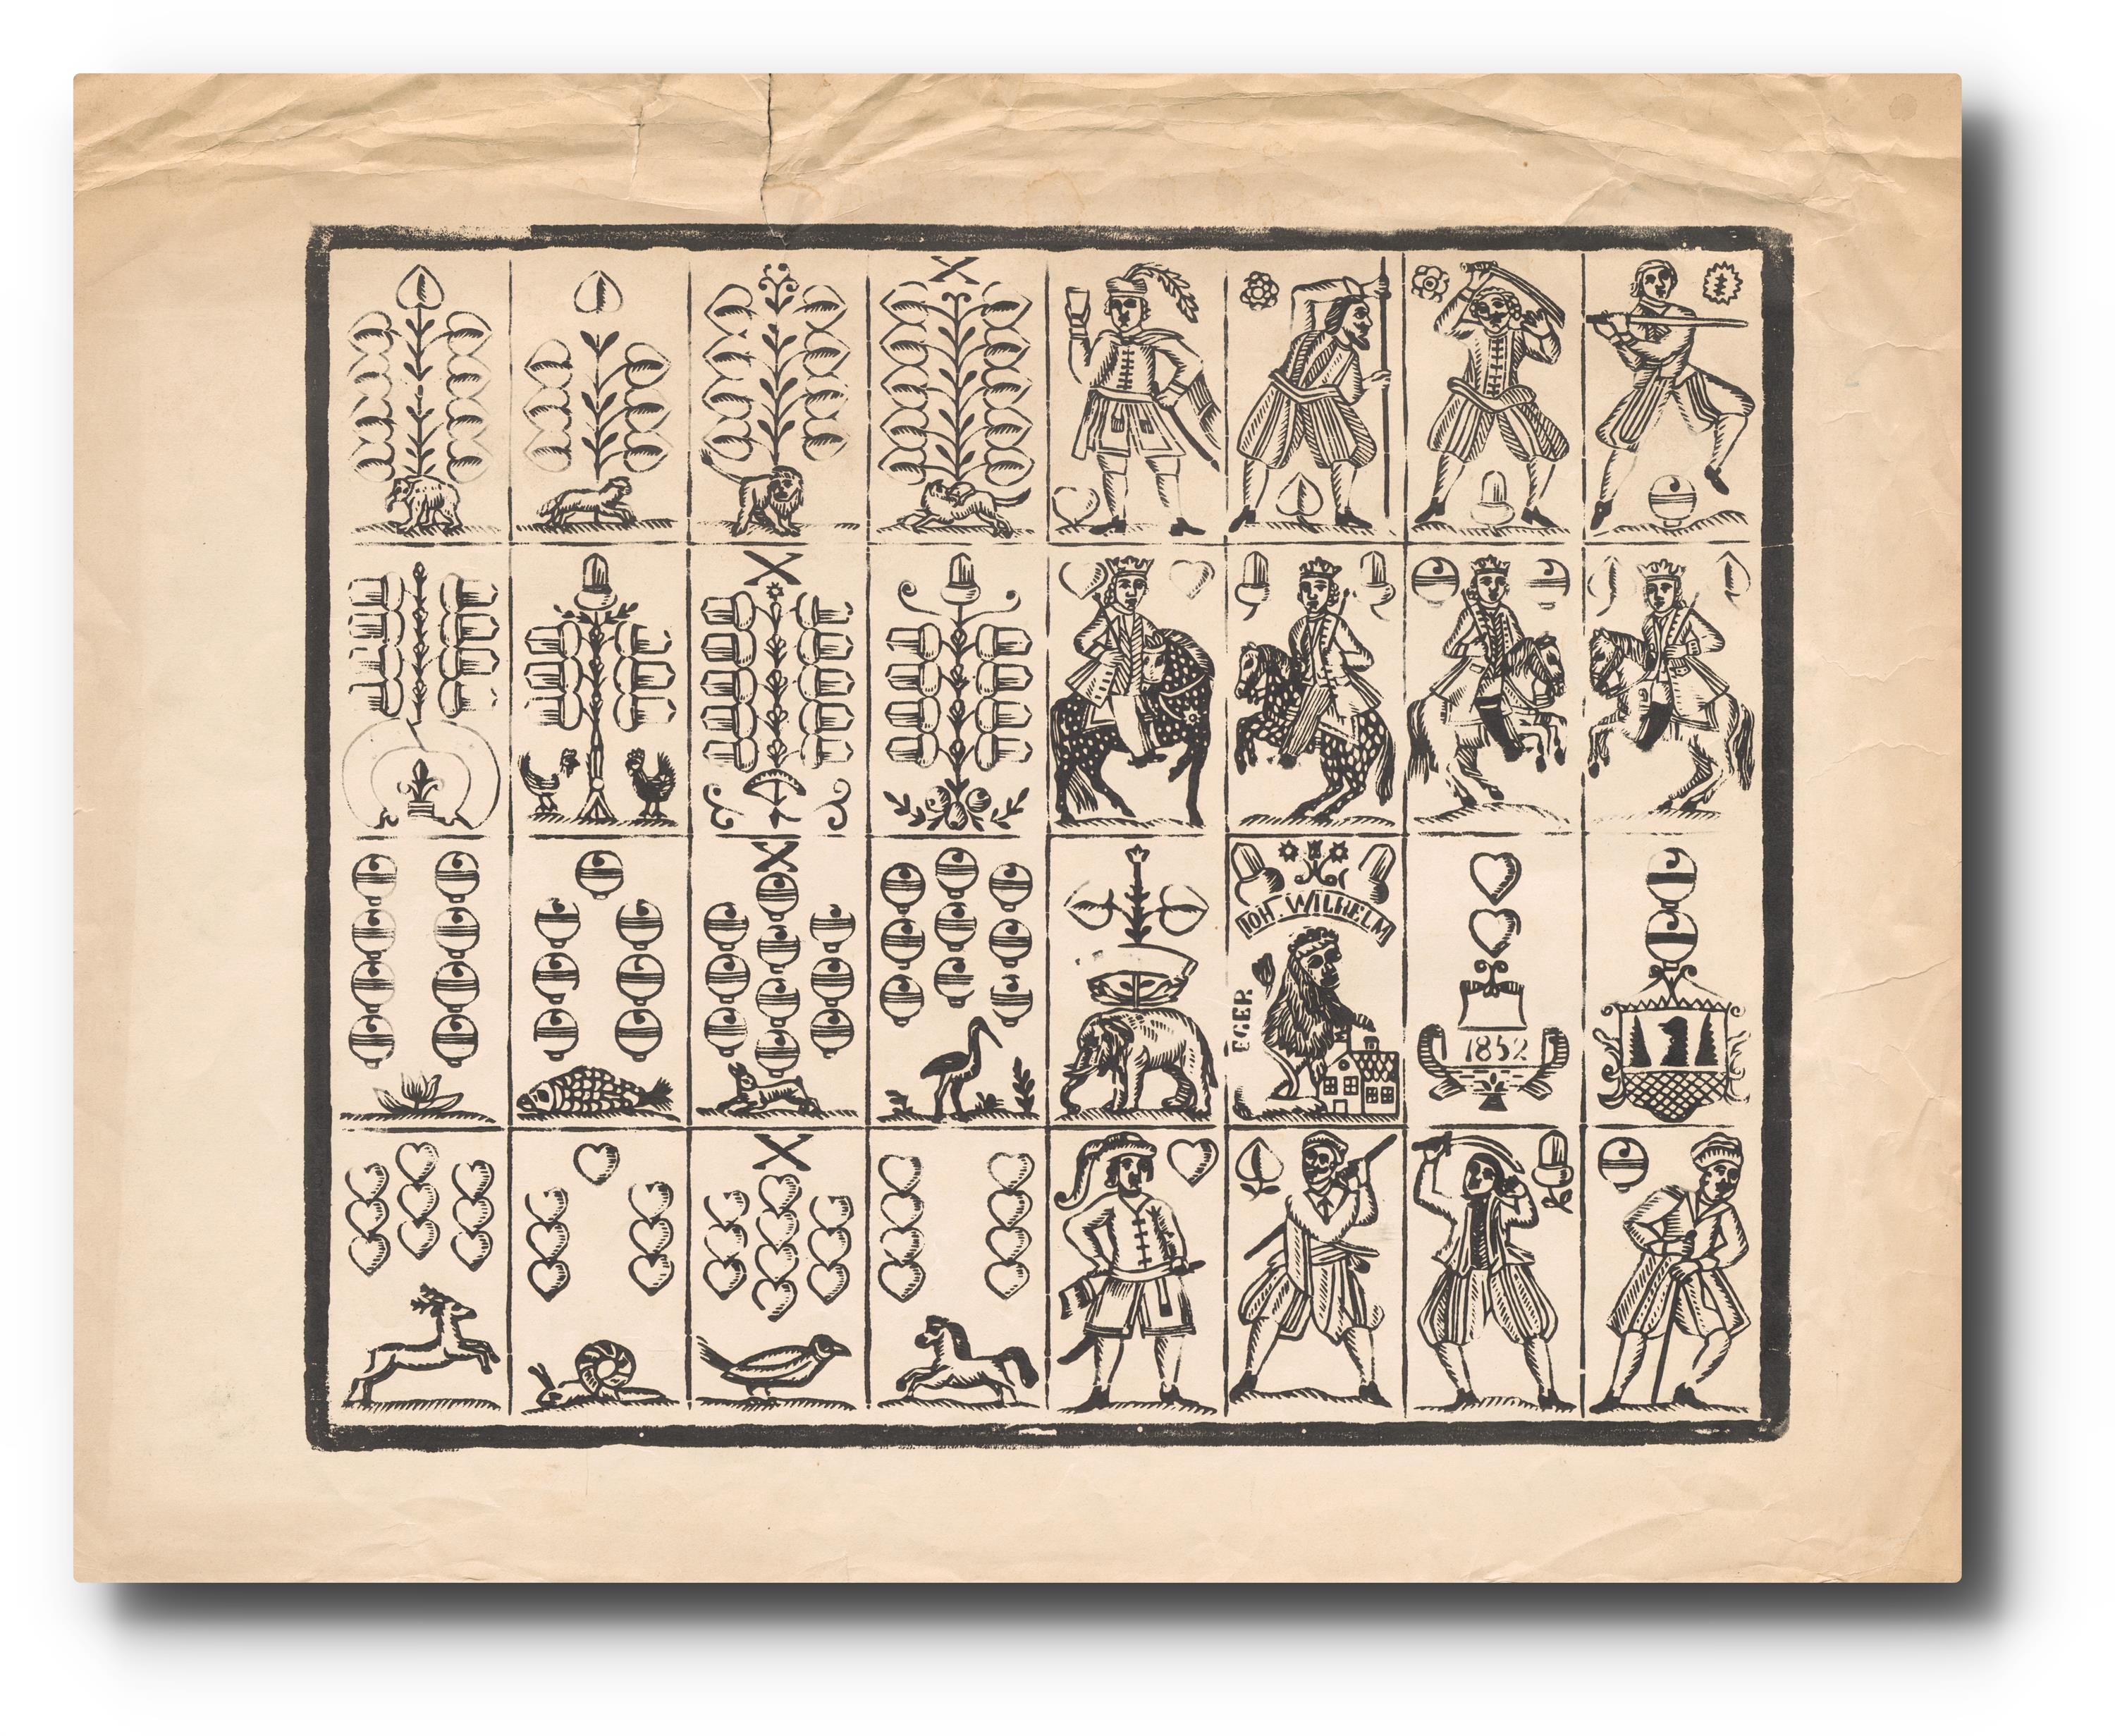 X
X
X
IOH. WILHELM
EGER
1852
X